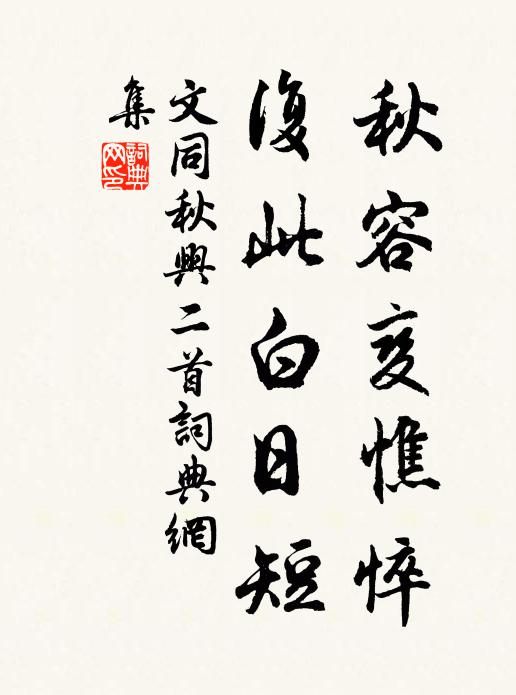 秋容变憔悴
復此白日短
文同秋興二首詞典網
集
詞典网印